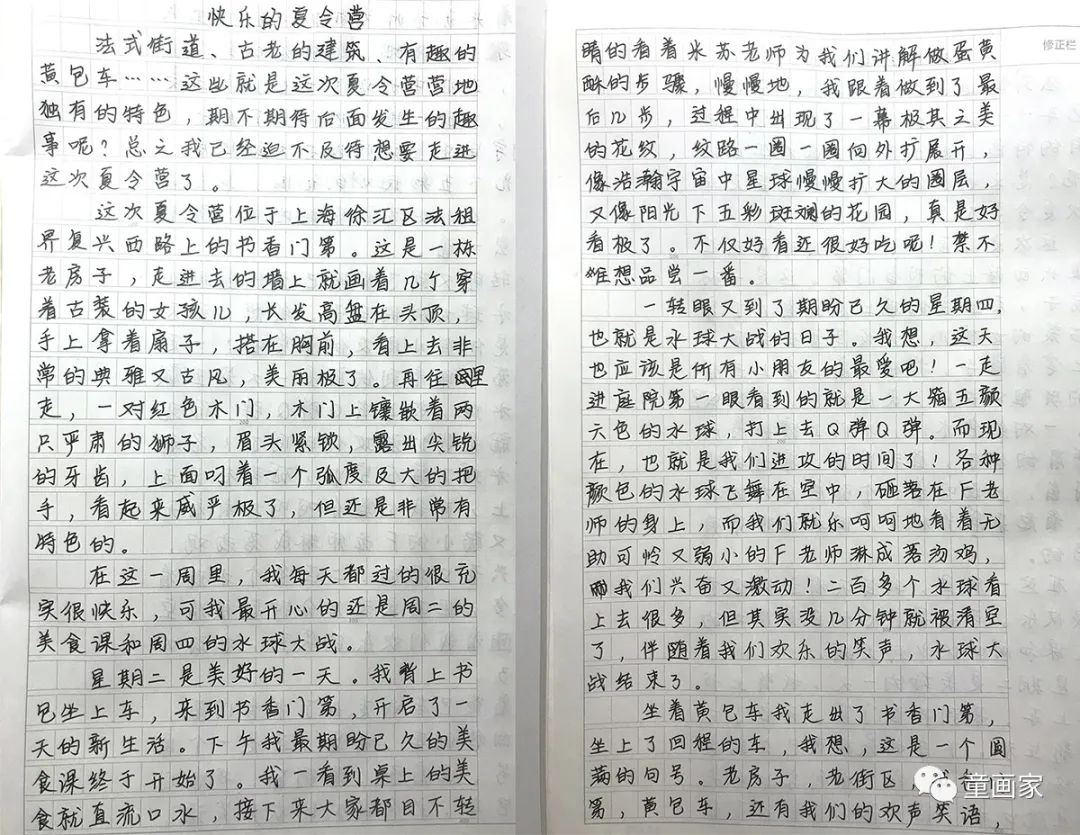 快乐的夏令营
法式街道、古老的建筑、有趣的
黄包车……这些就是这次夏令营营地
独有的特色，期不期待后面发生的趣
事呢？总之我已经迫不及待想要走进
这次夏令营了。
这次夏令营位于上海徐汇区法租
界复兴西路上的书香门第。这是一栋
老房子，走进去的墙上就画着几个穿
着古装的女孩儿，长发高盘在头顶，
手上拿着扇子，搭在胸前，看上去非
常的典雅又古风，美丽极了。再往里
走，一对红色木门，木门上镶嵌着两
只严肃的狮子，眉头紧锁，露出尖锐
的牙齿，上面叼着一个弧度及大的把
手，看起来威严极了，但还是非常有
特色的。
在这一周里，我每天都过的很充
实很快乐，可我最开心的还是周二的
美食课和周四的水球大战。
星期二是美好的一天。我背上书
包坐上车，来到书香门第，开启了一
天的新生活。下午我最期盼已久的美
食课终于开始了。我一看到桌上的美
食就直流口水，接下来大家都目不转
修正栏
睛的看着米苏老师为我们讲解做蛋黄
酥的步骤，慢慢地，我跟着做到了最
后几步，过程中出现了一幕极其之美
的花纹，纹路一圈一圈向外扩展开，
像浩瀚宇宙中星球慢慢扩大的圈层，
又像阳光下五彩斑斓的花园，真是好
看极了。不仅好看还很好吃呢！禁不
住想品尝一番。
一转眼又到了期盼已久的星期四，
也就是水球大战的日子。我想，这天
也应该是所有小朋友的最爱吧！一走
进庭院第一眼看到的就是一大箱五颜
六色的水球，打上去Q弹Q弹。而现
在，也就是我们进攻的时间了！各种
颜色的水球飞舞在空中，砸落在F老
师的身上，而我们就乐呵呵地看着无
助可怜又弱小的F老师淋成落汤鸡，
我们兴奋又激动！二百多个水球看
上去很多，但其实没几分钟就被清空
了，伴随着我们欢乐的笑声，水球大
战结束了。
坐着黄包车我走出了书香门第，
坐上了回程的车，我想，这是一个圆
满的句号。老房子，老街区，
第，黄包车，还有我们的欢声笑语，
童画家
200